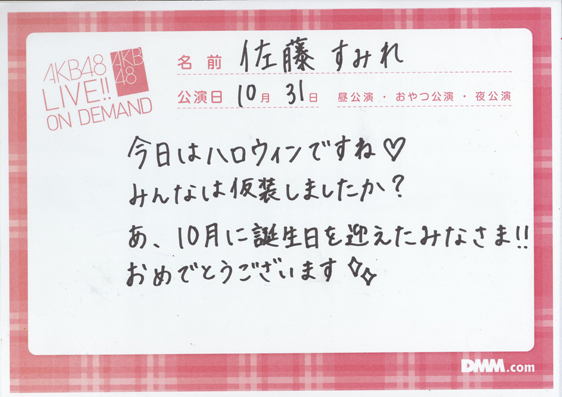 AKB48
LIVE!!
ON DEMAND
AKB
48
名前 佐藤 すみれ
公演日 10月 31日 昼公演・おやつ公演・夜公演
今日はハロウィンですね♡
みんなは仮装しましたか？
あ、10月に誕生日を迎えたみなさま!!
おめでとうございます
DMM.com